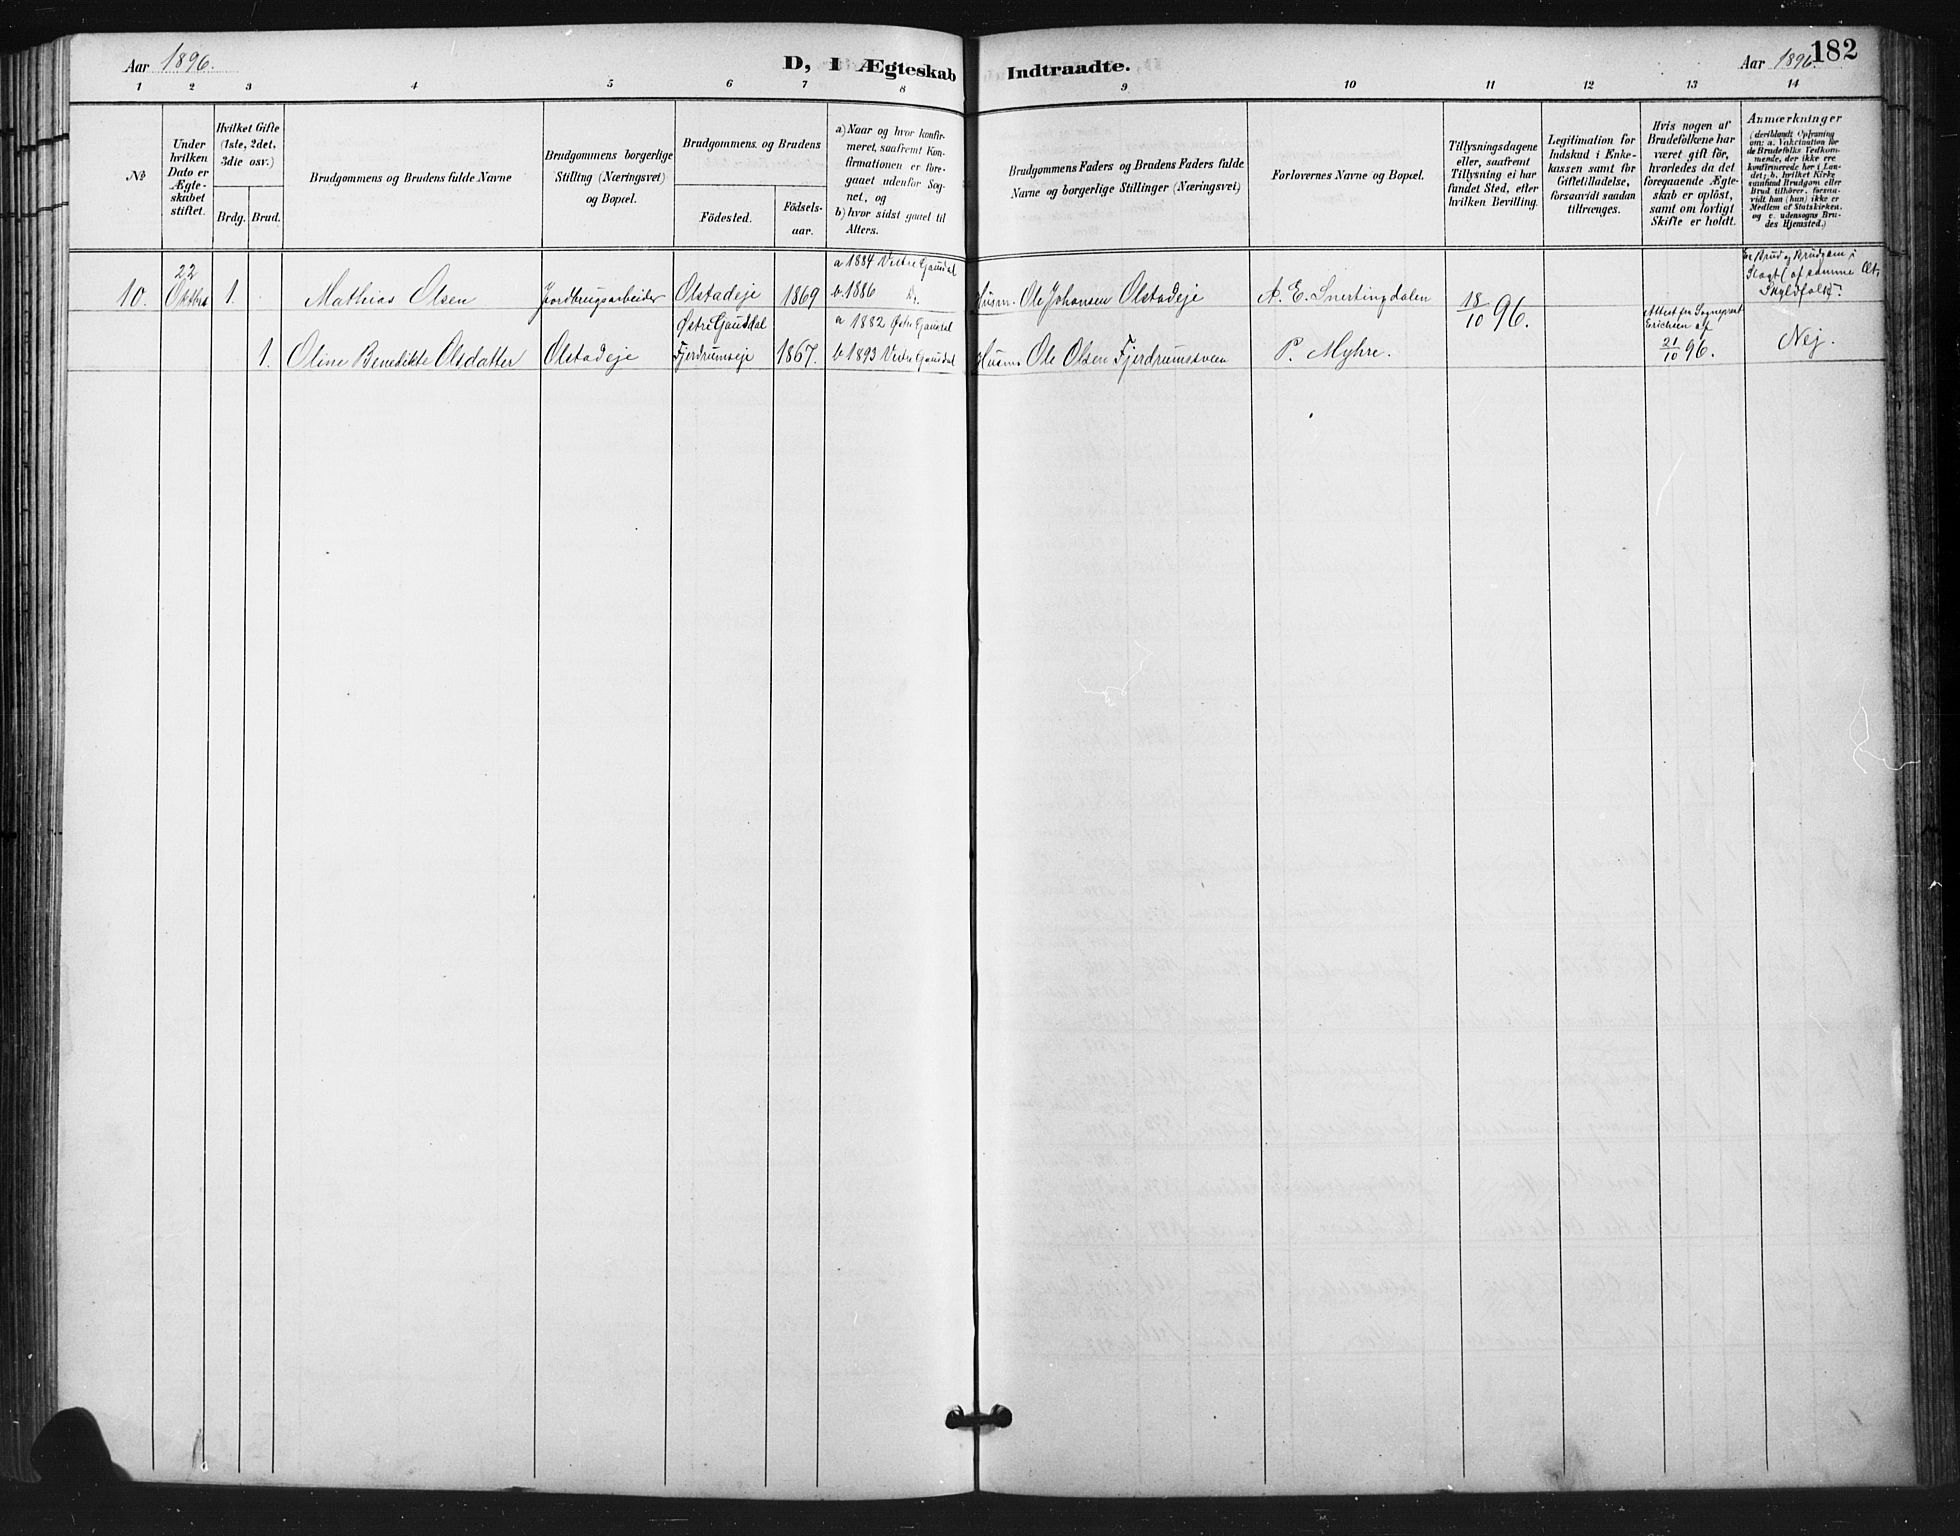 Aar 1896.
D, I Ægteskab Indtraadte.
Aar 1896. 182
1 2 3 4 5 6 7 8 9 10 11 12 13 14
No
Under hvilken Dato er Ægteskabet stiftet.
Hvilket Gifte (1ste, 2det, 3die osv.)
Brdg. Brud.
Brudgommens og Brudens fulde Navne
Brudgommens borgerlige Stilling (Næringsvei) og Bopæl.
Brudgommens og Brudens
Födested. Födselsaar.
a) Naar og hvor konfirmeret, saafremt Konfirmationen er foregaaet udenfor Sognet, og
b) hvor sidst gaaet til Alters.
Brudgommens Faders og Brudens Faders fulde Navne og borgerlige Stillinger (Næringsvei)
Forlovernes Navne og Bopæl.
Tillysningsdagene eller, saafremt Tillysning ei har fundet Sted, efter hvilken Bevilling.
Legitimation for Indskud i Ænkekassen samt for Giftetilladelse, forsaavidt saadan tiltrænges.
Hvis nogen af Brudefolkene har været gift för, hvorledes da det foregaaende Ægteskab er oplöst, samt om lovligt Skifte er holdt.
Anmærkninger
(deriblandt Oplysning om: a. Vakcination för de Brudefolks Vedkommende, der ikke ere konfirmerede her i Landet; b. hvilket Kirkesamfund Brudgom eller Brud tilhörer, forsaavidt han (hun) ikke er Medlem af Statskirken, og c. udensogns Brudes Hjemsted.)
10. 22 Oktbr 1. Mathias Olsen Jordbrugsarbeider Olstadeje 1869 a 1884 Vestre Gausdal b 1886 Do. Husm. Ole Johansen Olstadeje A. E. Snertingdalen 18/10 96. Er Brud og Brudgom i Slægt (af samme Æt, Skyldfolk)?
1. Oline Benedikte Olsdatter Olstadeje Østre Gausdal Fjerdrumseje 1867. a 1882 Østre Gausdal b 1893 Vestre Gausdal Husm. Ole Olsen Fjerdrumssveen P. Myhre. Attest fra Sogneprest Erichsen af 21/10 96. Nej.